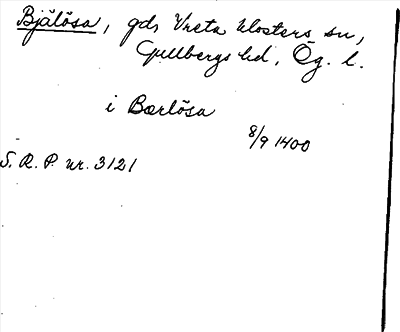 Bjälösa, gd, Vreta klosters sn,
Gullbergs hd, Ög. l.
i Bærlösa
8/9 1400
S. R. P. nr. 3121